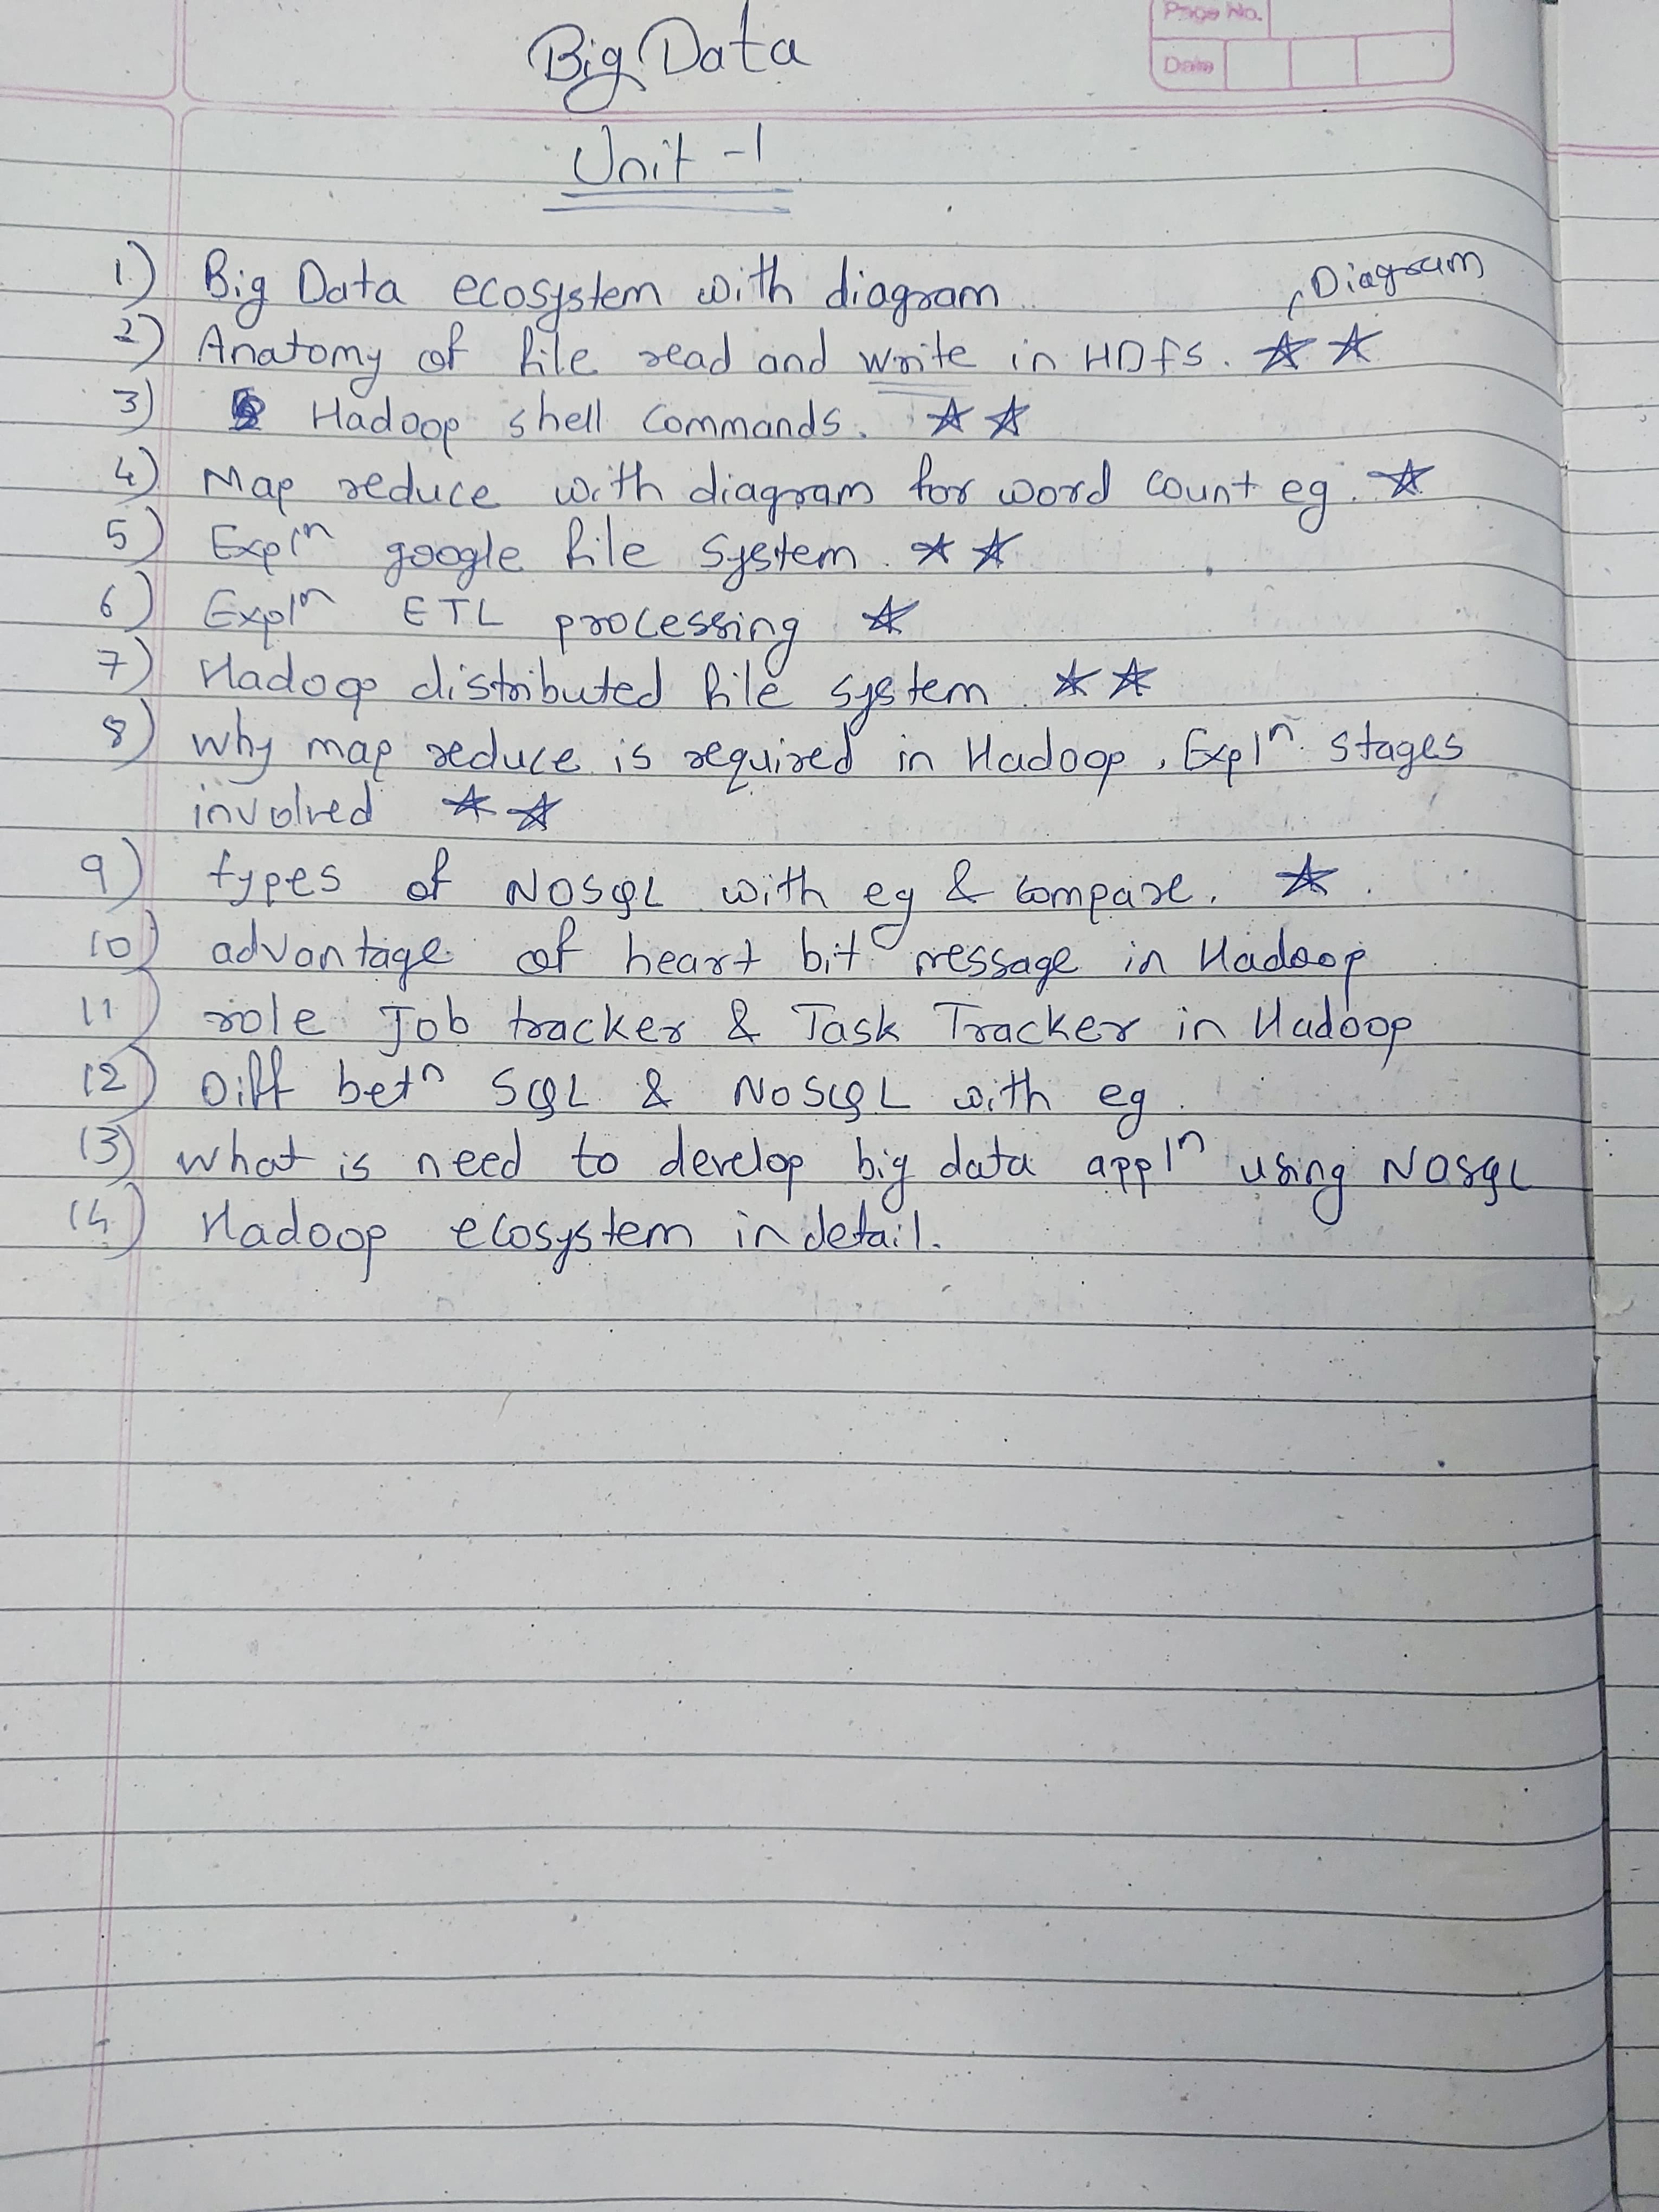 Page No.
Date
Big Data
Unit -1
1) Big Data ecosystem with diagram
Diagram
2) Anatomy of file read and write in HDFS. ☆ ☆
3) Hadoop shell commands. ☆ ☆
4) Map reduce with diagram for word count eg. ☆
5) Explⁿ google file system. ☆ ☆
6) Explⁿ ETL processing ☆
7) Hadoop distributed file system ☆ ☆
8) why map reduce is required in Hadoop, Explⁿ. stages
involved ☆ ☆
9) types of NOSQL with eg & compare. ☆.
10) advantage of heart bit message in Hadoop
11) role Job tracker & Task Tracker in Hadoop
12) Diff betⁿ SQL & NOSQL with eg.
13) what is need to develop big data applⁿ using NOSQL
14) Hadoop ecosystem in detail.